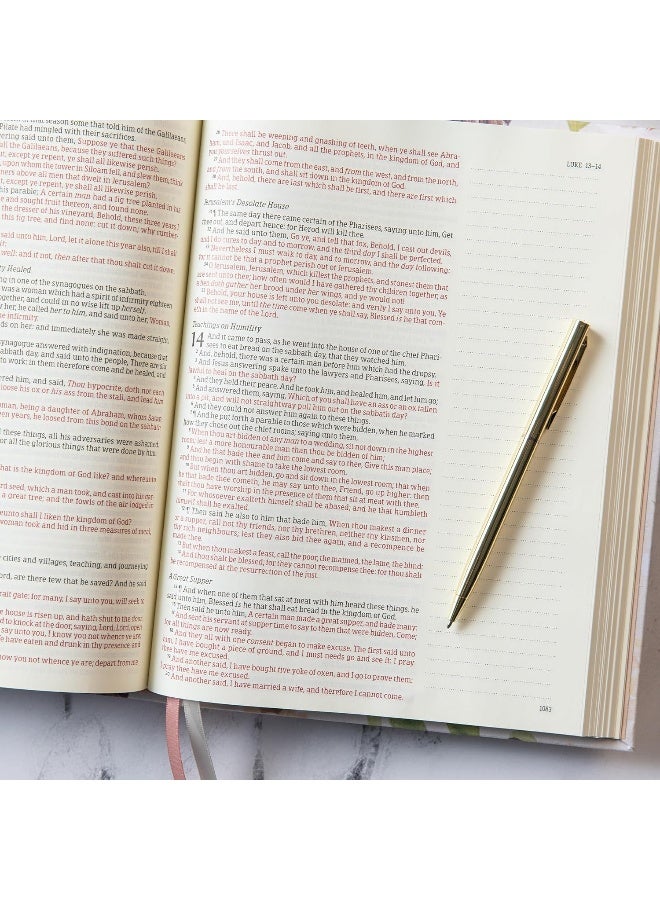 that season some that told him of the Galilaeans,
Pilate had mingled with their sacrifices.
ering said unto them, Suppose ye that these Galilaeans
all the Galilaeans, because they suffered such things?
t, except ye repent, ye shall all likewise perish.
upon whom the tower in Siloam fell, and slew them, think
ners above all men that dwelt in Jerusalem?
t, except ye repent, ye shall all likewise perish.
his parable; A certain man had a fig tree planted in his
e and sought fruit thereon, and found none.
the dresser of his vineyard, Behold, these three years I
this fig tree, and find none: cut it down; why cumber-
said unto him, Lord, let it alone this year also, till I shall
well: and if not, then after that thou shalt cut it down.
y Healed
ing in one of the synagogues on the sabbath.
a woman which had a spirit of infirmity eighteen
ogether, and could in no wise lift up herself.
her, he called her to him, and said unto her, Woman,
e infirmity.
ds on her: and immediately she was made straight,
synagogue answered with indignation, because that
abbath day, and said unto the people, There are six
to work: in them therefore come and be healed, and
red him, and said, Thou hypocrite, doth not each
loose his ox or his ass from the stall, and lead him
oman, being a daughter of Abraham, whom Satan
een years, be loosed from this bond on the sabbath
these things, all his adversaries were ashamed:
or all the glorious things that were done by him.
hat is the kingdom of God like? and whereunto
rd seed, which a man took, and cast into his
a great tree; and the fowls of the air lodged in
unto shall I liken the kingdom of God?
woman took and hid in three measures of meal,
cities and villages, teaching, and journeying
ord, are there few that be saved? And he said
it gate: for many, I say unto you, will seek
house is risen up, and hath shut to the door,
d to knock at the door, saying, Lord, Lord, open
say unto you, I know you not whence ye are:
We have eaten and drunk in thy presence, and
now you not whence ye are; depart from me
LUKE 13–14
28 There shall be weeping and gnashing of teeth, when ye shall see Abra-
ham, and Isaac, and Jacob, and all the prophets, in the kingdom of God, and
you yourselves thrust out.
29 And they shall come from the east, and from the west, and from the north,
and from the south, and shall sit down in the kingdom of God.
30 And, behold, there are last which shall be first, and there are first which
shall be last.
Jerusalem's Desolate House
31 ¶ The same day there came certain of the Pharisees, saying unto him, Get
thee out, and depart hence: for Herod will kill thee.
32 And he said unto them, Go ye, and tell that fox, Behold, I cast out devils,
and I do cures to day and to morrow, and the third day I shall be perfected.
33 Nevertheless I must walk to day, and to morrow, and the day following:
for it cannot be that a prophet perish out of Jerusalem.
34 O Jerusalem, Jerusalem, which killest the prophets, and stonest them that
are sent unto thee; how often would I have gathered thy children together, as
a hen doth gather her brood under her wings, and ye would not!
35 Behold, your house is left unto you desolate: and verily I say unto you, Ye
shall not see me, until the time come when ye shall say, Blessed is he that com-
eth in the name of the Lord.
Teachings on Humility
14 And it came to pass, as he went into the house of one of the chief Phari-
sees to eat bread on the sabbath day, that they watched him.
2 And, behold, there was a certain man before him which had the dropsy.
3 And Jesus answering spake unto the lawyers and Pharisees, saying, Is it
lawful to heal on the sabbath day?
4 And they held their peace. And he took him, and healed him, and let him go;
5 And answered them, saying, Which of you shall have an ass or an ox fallen
into a pit, and will not straightway pull him out on the sabbath day?
6 And they could not answer him again to these things.
7 ¶ And he put forth a parable to those which were bidden, when he marked
how they chose out the chief rooms; saying unto them,
8 When thou art bidden of any man to a wedding, sit not down in the highest
room; lest a more honourable man than thou be bidden of him;
9 And he that bade thee and him come and say to thee, Give this man place;
and thou begin with shame to take the lowest room.
10 But when thou art bidden, go and sit down in the lowest room; that when
he that bade thee cometh, he may say unto thee, Friend, go up higher: then
shalt thou have worship in the presence of them that sit at meat with thee.
11 For whosoever exalteth himself shall be abased; and he that humbleth
himself shall be exalted.
12 ¶ Then said he also to him that bade him, When thou makest a dinner
or a supper, call not thy friends, nor thy brethren, neither thy kinsmen, nor
thy rich neighbours; lest they also bid thee again, and a recompence be
made thee.
13 But when thou makest a feast, call the poor, the maimed, the lame, the blind:
14 And thou shalt be blessed; for they cannot recompense thee: for thou shalt
be recompensed at the resurrection of the just.
A Great Supper
15 ¶ And when one of them that sat at meat with him heard these things, he
said unto him, Blessed is he that shall eat bread in the kingdom of God.
16 Then said he unto him, A certain man made a great supper, and bade many:
17 And sent his servant at supper time to say to them that were bidden, Come;
for all things are now ready.
18 And they all with one consent began to make excuse. The first said unto
him, I have bought a piece of ground, and I must needs go and see it: I pray
thee have me excused.
19 And another said, I have bought five yoke of oxen, and I go to prove them:
I pray thee have me excused.
20 And another said, I have married a wife, and therefore I cannot come.
1083